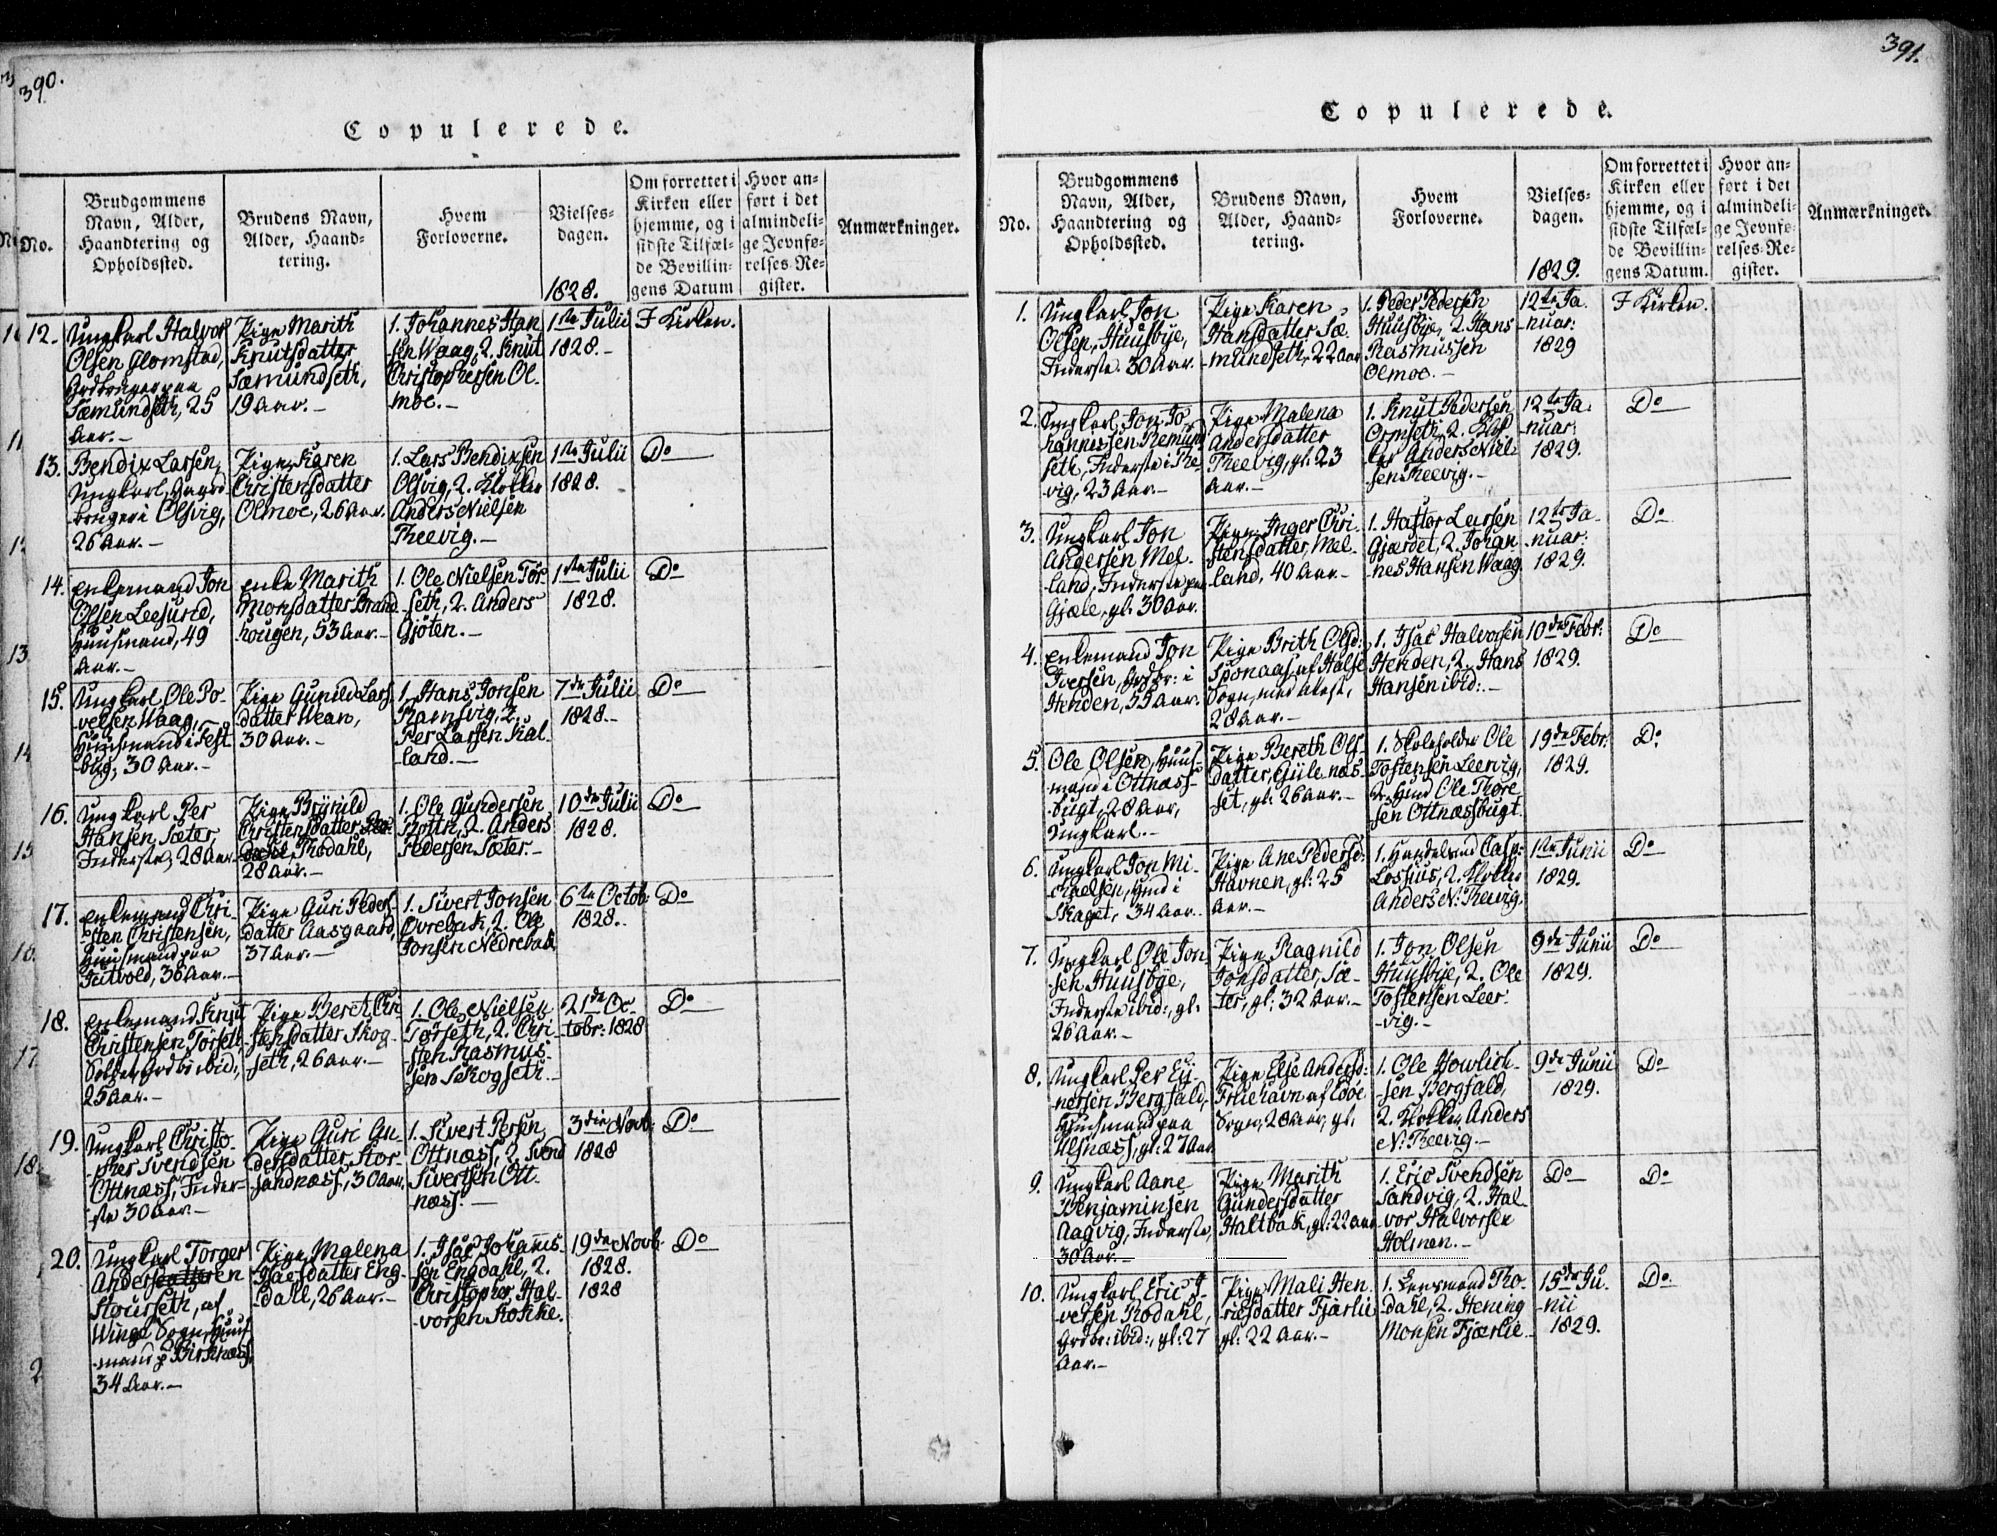 390.
Copulerede.
No.
Brudgommens
Navn, Alder,
Haandtering og
Opholdssted.
Brudens Navn,
Alder, Haand=
tering.
Hvem
Forloverne.
Vielses=
dagen.
1828.
Om forrettet i
Kirken eller
hjemme, og i
sidste Tilfæl=
de Bevillin=
gens Datum
Hvor an=
ført i det
almindeli=
ge Jevnfø=
relses=Re=
gister.
Anmærkninger.
12.
Ungkarl Halvor
Olsen Glomstad,
Grdbruger paa
Sæmundseth, 25
Aar.-
Pige Marith
Knutsdatter
Sæmundseth,
19 Aar.-
1. Johannes Han
sen Waag, 2. Knut
Christophersen Ol-
moe.-
1ste Julii
1828.-
I Kirken.
13.
Bendix Larsen,
Ungkarl, Gaard
bruger i Olsvig,
26 Aar.-
Pige Karen
Christensdatter
Olmoe, 26 Aar.
1. Lars Bendixsen
Olsvig, 2. Klokker
Anders Nielsen
Theevig.-
1ste Julii
1828.
Do
14.
Enkemand Jon
Olsen Leesund,
Huusmand, 49
Aar.-
Enke Marith
Monsdatter Brand
hougen, 53 Aar.-
1. Ole Nielsen Tør-
seth, 2. Anders
Gjøten.-
1ste Julii
1828.
Do
15.
Ungkarl Ole Po-
velsen Waag,
Huusmand i Fest
bug, 30 Aar.-
Pige Gunild Lars
datter Wean,
30 Aar.-
1. Hans Jonsen
Ramsvig, 2.
Per Larsen Kal-
land.-
7de Julii
1828.-
Do
16.
Ungkarl Per
Hansen Sæter,
Inderste, 28 Aar.
Pige Brynild
Christensdatter
Thodahl,
28 Aar.-
1. Ole Gundersen
Rottn, 2. Anders
Pedersen Sæter.-
10de Julii
1828.
Do
17.
Enkemand Chri-
sten Christensen,
Huusmand paa
36 Aar.-
Pige Guri Peders
datter Aasgaard,
37 Aar.-
1. Sivert Jonsen
Øvrebak, 2. Ole
Jonsen Nedrebak
6te Octob:
1828.
Do
18.
Enkemand Knut
Christensen Tørseth
Soldat Grdbr ibid:,
25 Aar.-
Pige Beret Chri
stensdatter Skog-
seth, 26 Aar.-
1. Ole Nielsen
Tørseth, 2. Chri
sten Rasmus-
sen Skogseth.-
21de Oc-
tobr: 1828
Do
19.
Ungkarl Christo-
pher Svendsen
Ottnæss, Inder-
ste 30 Aar.-
Pige Guri An-
dersdatter Stor-
sandnæss, 30 Aar.
1. Sivert Persen
Ottnæss, 2. Svend
Sivertsen Ott-
næss.-
3die Novb:
1828
Do
20.
Ungkarl Torger
Andersen
Stourseth, af
Winge Sogn, Huus
mand p Birknæss,
34 Aar.-
Pige Malena
Isacsdatter Eng-
dahl, 26 Aar.-
1. Isac Johannis-
sen Engdahl, 2.
Christopher Hal-
vorsen Stokke.
19de Novb
1828.
1828
Do
391.
Copulerede.
No.
Brudgommens
Navn, Alder,
Haandtering og
Opholdssted.
Brudens Navn,
Alder, Haand=
tering.
Hvem
Forloverne.
Vielses=
dagen.
1829.
Om forrettet i
Kirken eller
hjemme, og i
sidste Tilfæl=
de Bevillin=
gens Datum.
Hvor an=
ført i det
almindeli=
ge Jevnfø=
relses=Re=
gister.
Anmærkninger.
1.
Ungkarl Jon
Olsen, Huusbye,
Inderste 30 Aar.
Pige Karen
Hansdatter Sæ-
mundseth, 22 Aar
1. Peder Pedersen
Huusbye, 2. Hans
Rasmussen
Olmoe.-
12te Ja-
nuar:
1829
I Kirken.
2.
Ungkarl Jon Jo-
hannessen Remund
seth, Inderste i The-
vig, 23 Aar.-
Pige Malena
Andersdatter
Theevig, gl: 23
Aar.-
1. Knut Pedersen
Ormseth, 2. Klok
ker Anders Niel-
sen Theevig.-
12te Ja-
nuar:
1829.
Do
3.
Ungkarl Jon
Andersen Mel-
land, Inderste paa
Gjæle, gl: 30 Aar.
Pige Inger Chri-
stensdatter, Mel-
land, 40 Aar.-
1. Haftor Larsen
Gjærdet, 2. Johan
nes Hansen Waag.
12te Ja-
nuar:
1829.
Do
4.
Enkemand Jon
Iversen, Grdbr: i
Henden, 55 Aar.
Pige Brith Olsd:
Sponaas af Halse
Sogn, med Attest,
28 Aar.-
1. Isac Halvorsen
Henden, 2. Hans
Hansen ibid:-
10de Febr:
1829.
Do
5.
Ole Olsen, Huus-
mand i Ottnæss-
bugt, 28 Aar,
Ungkarl.-
Pige Bereth Ols-
datter, Gulenæs-
set, gl: 26 Aar.-
1. Skoleholder Ole
Tostensen Leervig,
2. Hmd Ole Thore
sen Ottnæssbugt.
19de Febr:
1829.
Do
6.
Ungkarl Jon Mi-
chaelsen, Hmd i
Skaget, 34 Aar.
Pige Ane Pedersd:
Havnen, gl: 25
Aar.-
1. Handelsmd Casp:
Lossius, 2. Klokker
Anders N: Theevig.
1ste Junii
1829.
Do
7.
Ungkarl Ole Jon-
sen Huusbye,
Inderste ibid:, gl:
26 Aar.-
Pige Ragnild
Jonsdatter, Sæ-
ter, gl: 32 Aar.-
1. Jon Olsen
Huusbye, 2. Ole
Tostensen Leer-
vig.-
9de Junii
1829.
Do
8.
Ungkarl Per Ey-
nersen Bergfald,
Huusmand paa
Ulsnæss, gl: 27 Aar
Pige Else Andersd:
af Edøe
Sogn, 28 Aar, gl.
1. Ole
sen Bergfald,
2. Klokker Anders
N: Theevig.-
9de Junii
1829.
Do
9.
Ungkarl Aane
Benjaminsen
Aagvig, Inderste,
30 Aar.-
Pige Marith
Gundersdatter
Haltbak, gl: 22 Aar
1. Eric Svendsen
Sandvig, 2. Hal-
vor Halvorsen
Holmen.-
Do
Do
10.
Ungkarl Eric I-
versen Rodahl,
Grdbr: ibid:, gl: 27
Aar.-
Pige Mali Hen-
ricsdatter Fjærlie
gl: 22 Aar.-
1. Lensmand Tho-
dahl, 2. Hening
Monsen Fjærlie.
15de Ju-
nii
1829.
Do